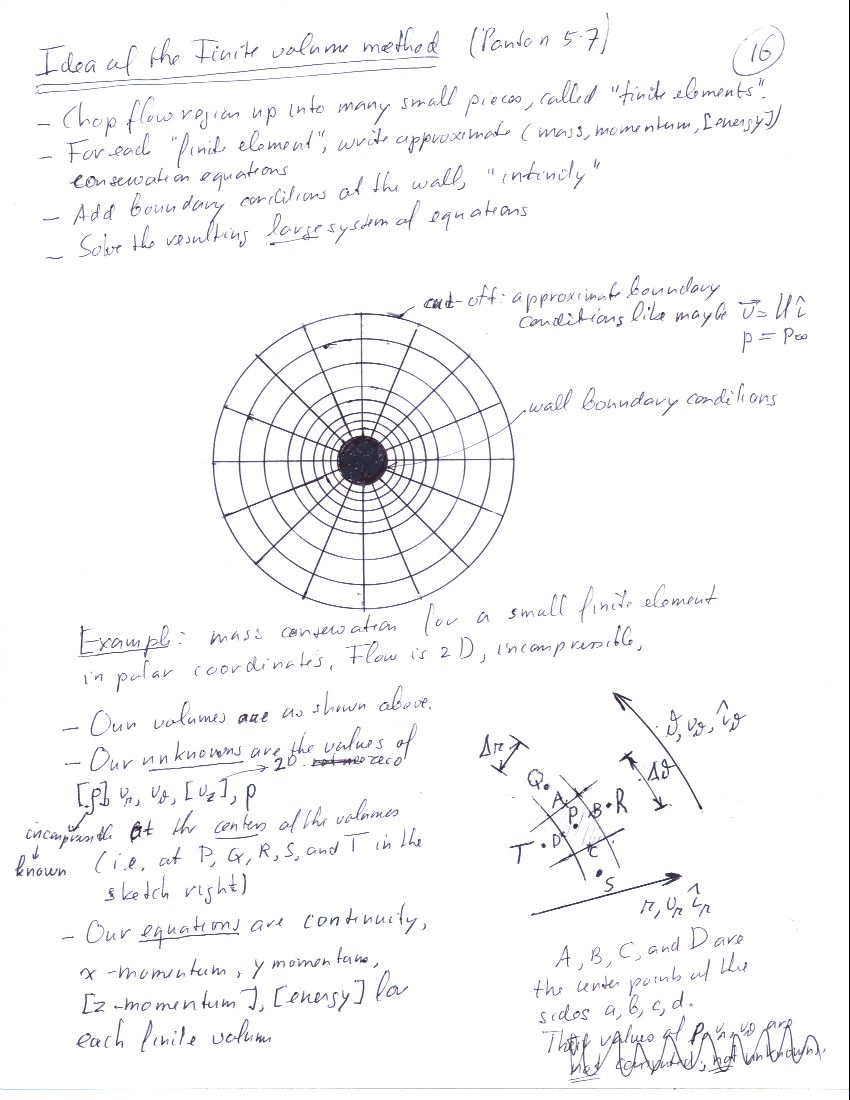 Idea of the Finite volume method (Panton 5.7)
16
- Chop flow region up into many small pieces, called "finite elements".
- For each "finite element", write approximate (mass, momentum, [energy])
conservation equations
- Add boundary conditions at the wall, "infinity"
- Solve the resulting large system of equations
cut-off: approximate boundary
conditions like maybe v⃗ = U î
p = p∞
wall boundary conditions
Example: mass conservation for a small finite element
in polar coordinates. Flow is 2D, incompressible.
- Our volumes are as shown above.
- Our unknowns are the values of
→ 2D zero
[ρ] vr, vϑ, [vz], p
incompressible
↓
known
at the centers of the volumes
(i.e. at P, Q, R, S, and T in the
sketch right)
- Our equations are continuity,
x-momentum, y momentum,
[z-momentum], [energy] for
each finite volume
Δr
ϑ, vϑ, îϑ
Δϑ
Q
A
P
B
R
T
D
C
S
r, vr îr
A, B, C, and D are
the center points of the
sides a, b, c, d.
Their values of p, vr, vϑ are
not computed, not unknowns.